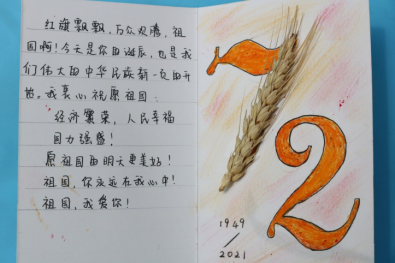 红旗飘飘，万众欢腾，祖
国啊！今天是你的诞辰，也是我
们伟大的中华民族新一页的开
始。我衷心祝愿祖国：
经济繁荣，人民幸福
国力强盛！
愿祖国的明天更美好！
祖国，你永远在我心中！
祖国，我爱你！
72
1949
/
2021